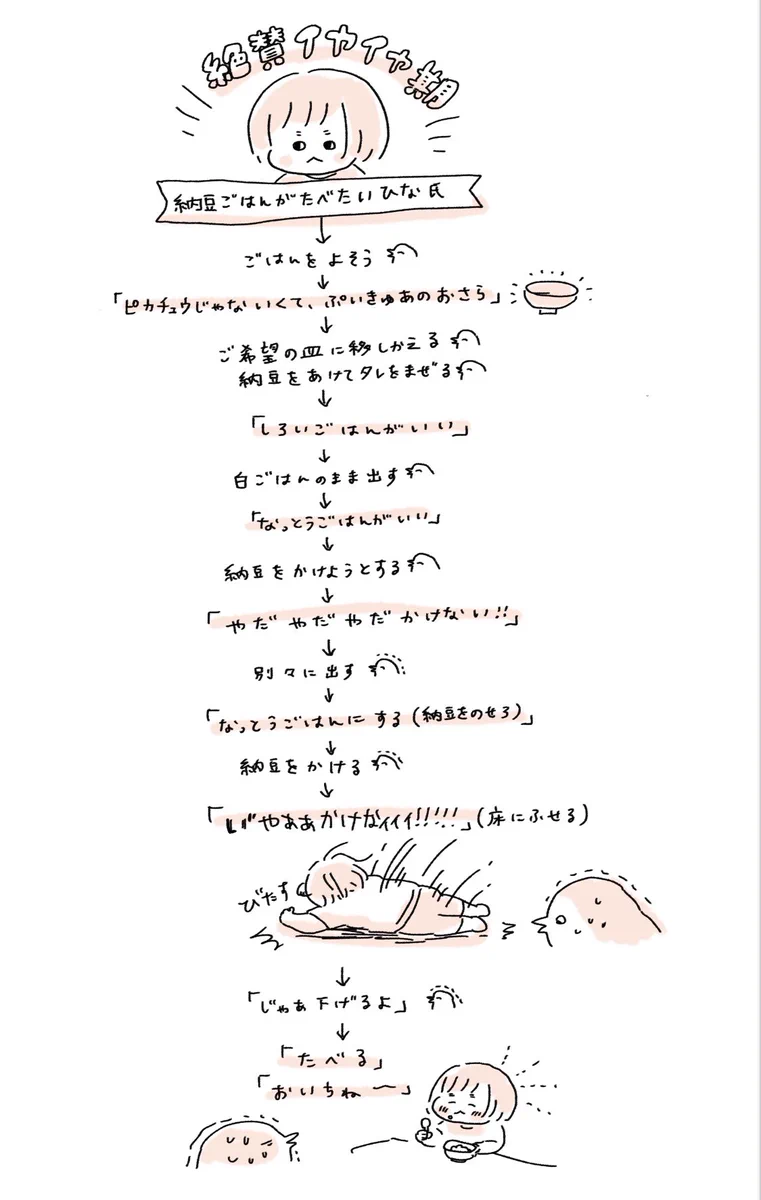 絶賛イヤイヤ期
納豆ごはんがたべたいひな氏
ごはんをよそう
「ピカチュウじゃないくて、ぷいきゅあのおさら」
ご希望の皿に移しかえる
納豆をあけてタレをまぜる
「しろいごはんがいい」
白ごはんのまま出す
「なっとうごはんがいい」
納豆をかけようとする
「やだやだやだかけない!!」
別々に出す
「なっとうごはんにする(納豆をのせろ)」
納豆をかける
「い゙やああかけなイイイ!!!!!」(床にふせる)
びたす
「じゃあ下げるよ」
「たべる」
「おいちね〜」